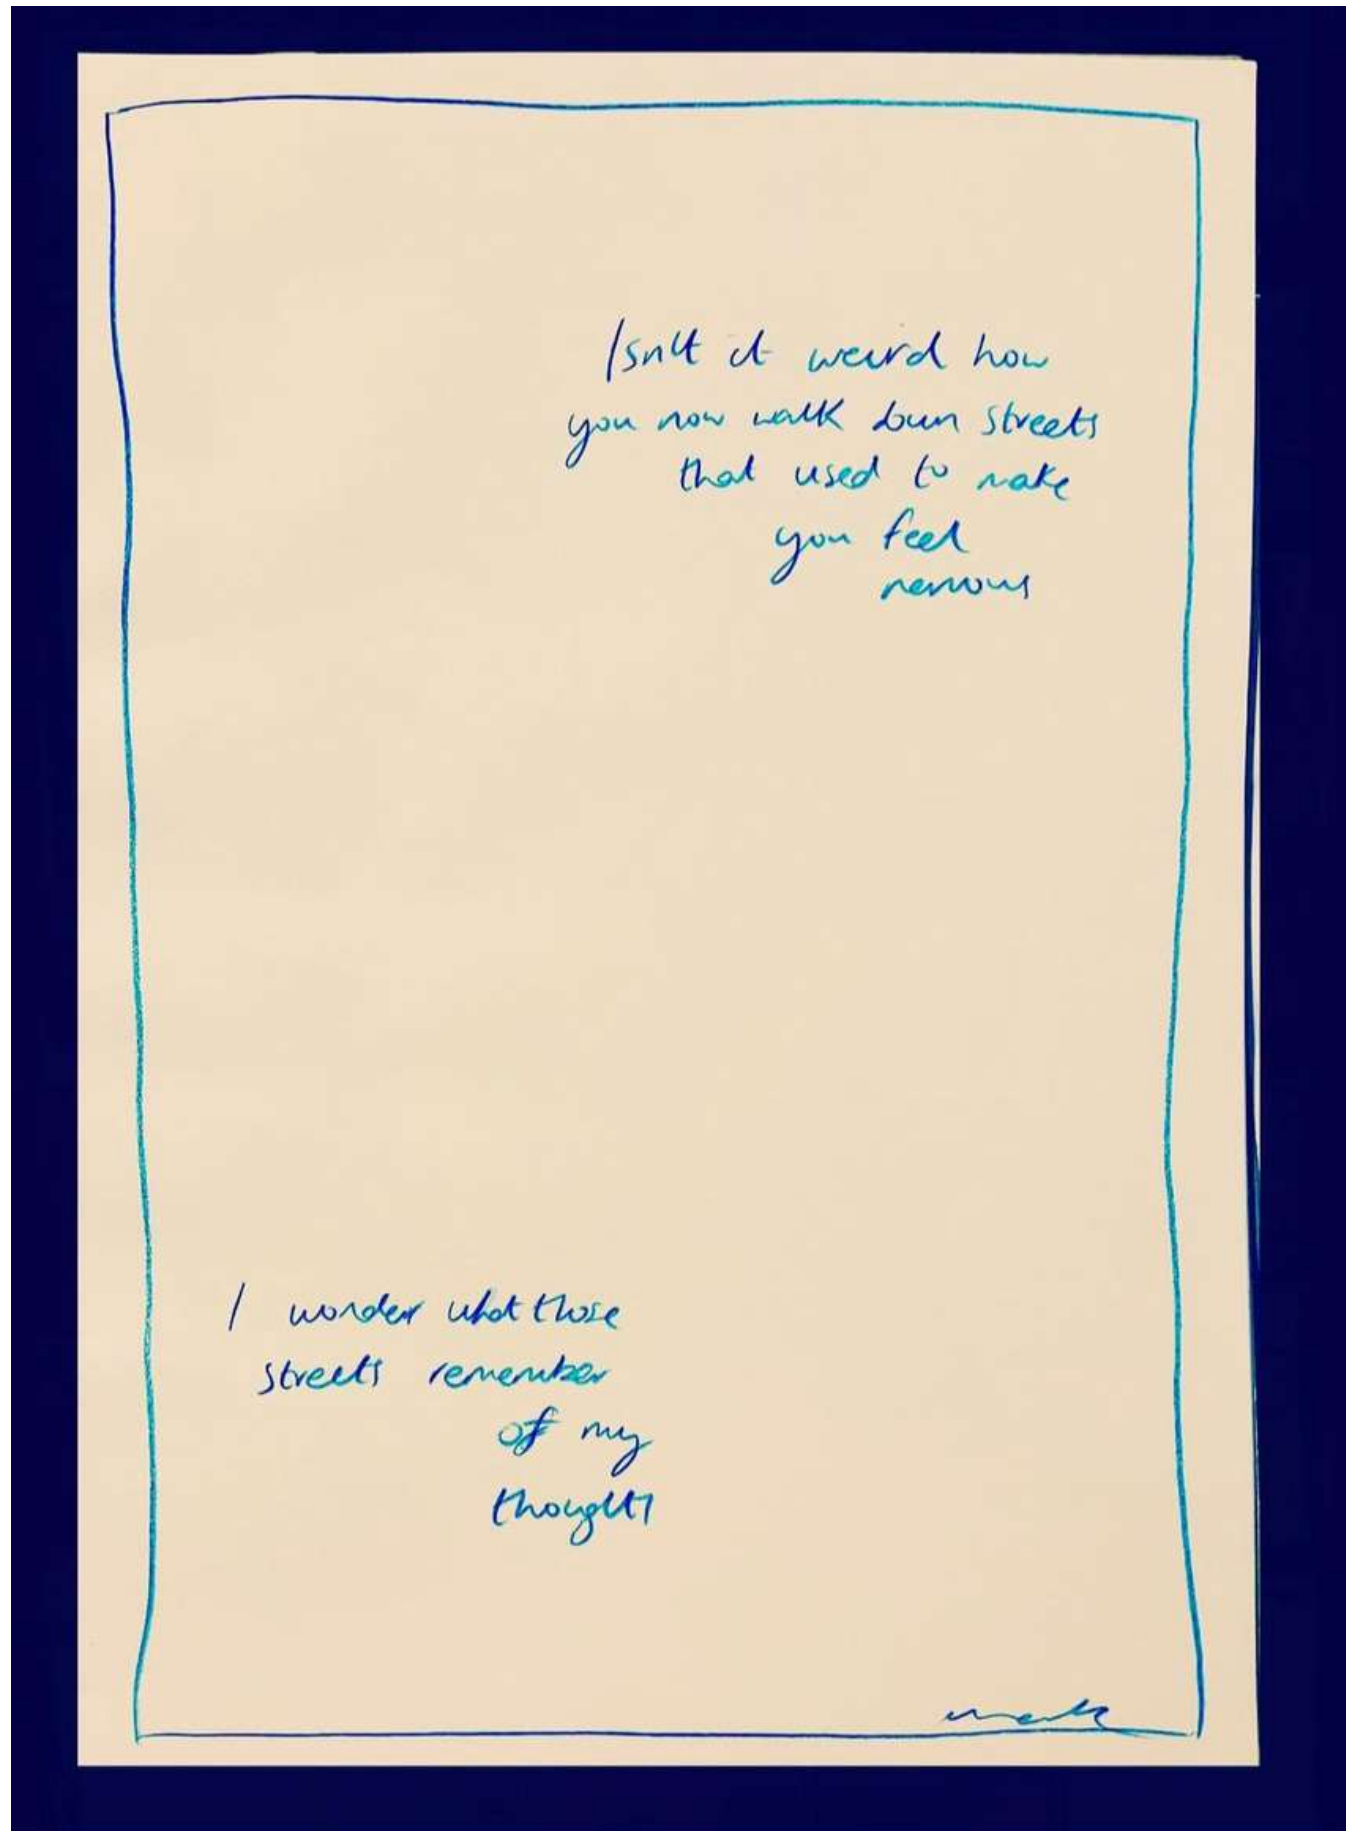 Isn't it weird how
you now walk down streets
that used to make
you feel
nervous
I wonder what those
streets remember
of my
thoughts